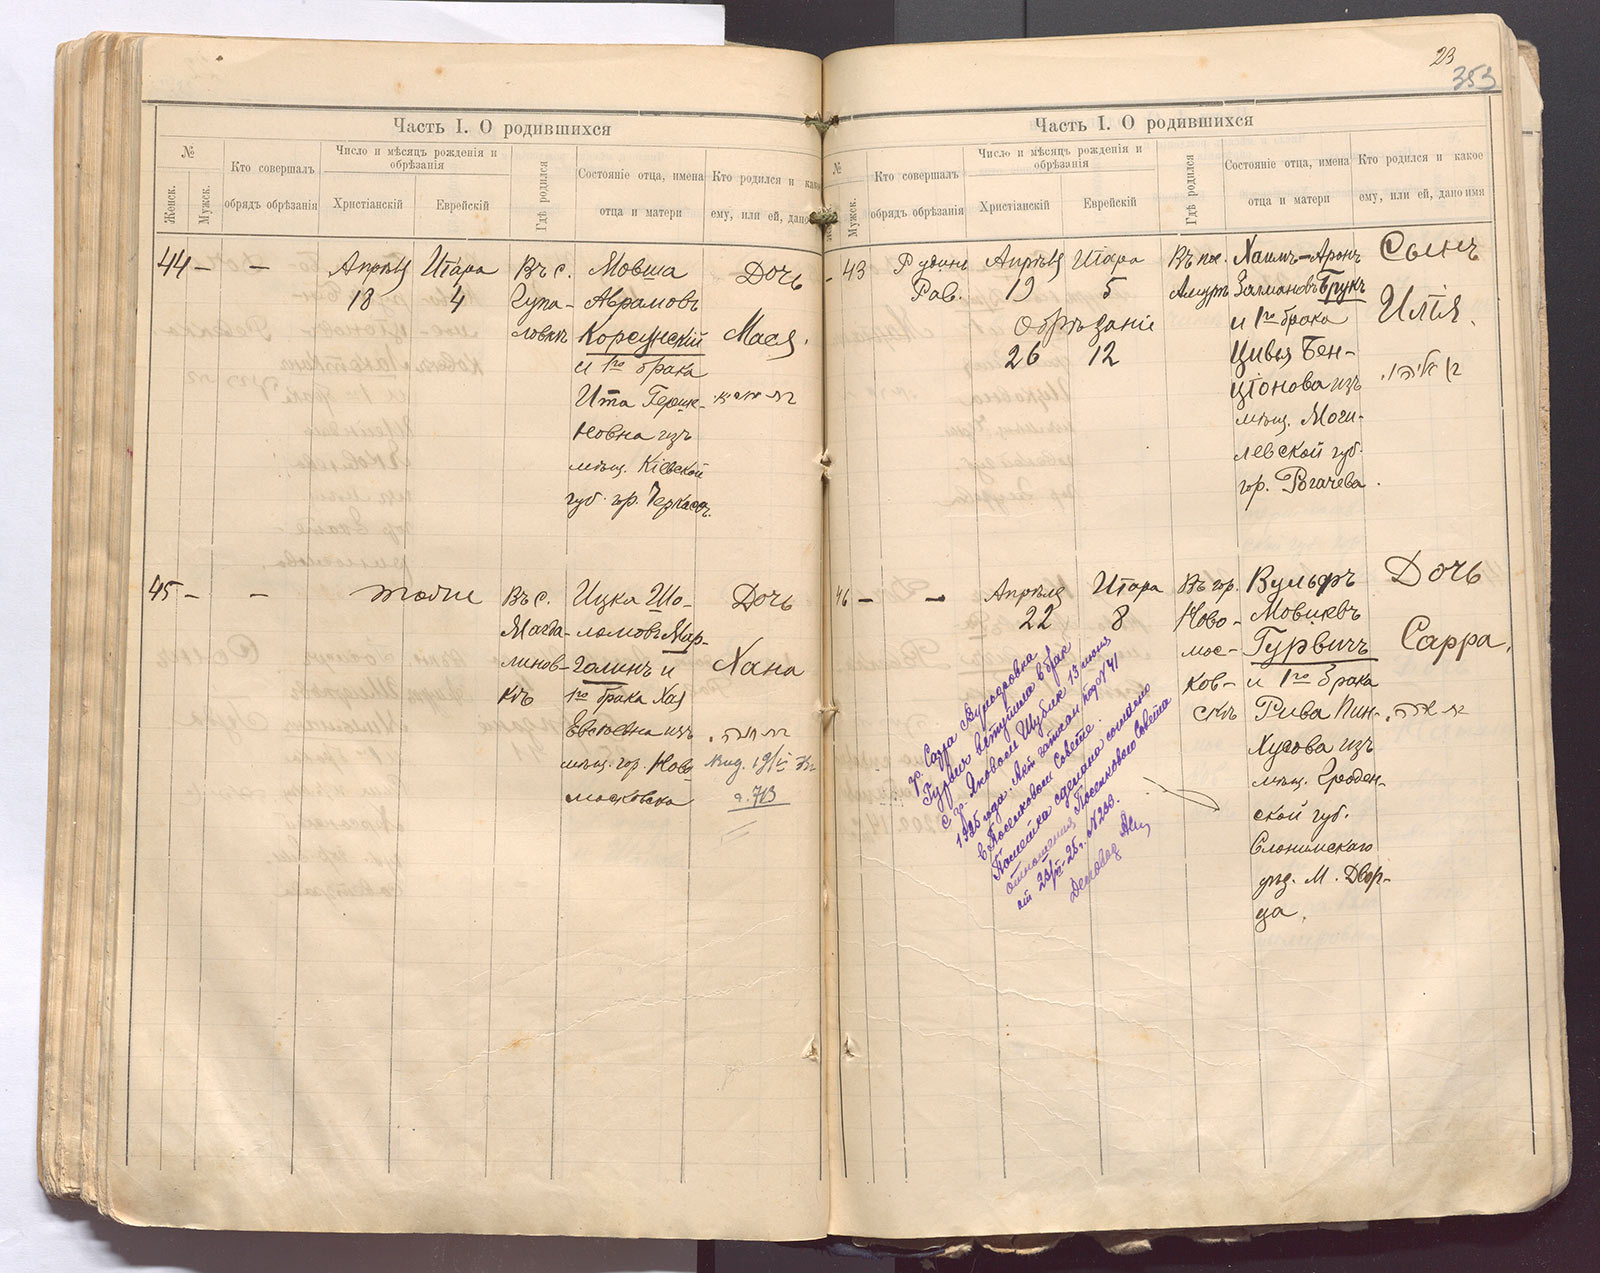 23
353
Часть I. О родившихся
№
Женск.
Мужск.
Кто совершалъ
обрядъ обрѣзанія
Число и мѣсяцъ рожденія и
обрѣзанія
Христіанскій
Еврейскій
Гдѣ родился
Состояніе отца, имена
отца и матери
Кто родился и како
ему, или ей, дано
44 — —
Апрѣля
18
Ияра
4
Въ с.
Чупа-
ловкѣ
Мовша
Аврамовъ
Корсунскій
и 1го брака
Ита Герш-
ковна изъ
мѣщ. Кіевской
губ. гор. Черкасъ.
Дочь
Мася.
45 — —
тоже
Въ с.
Магда-
линов-
кѣ
Ицка Шо-
ломовъ Мар-
голинъ и
1го брака Хая
Евсѣевна изъ
мѣщ. гор. Ново
московска
Дочь
Хана
בת חנה.
Часть I. О родившихся
№
Мужск.
Кто совершалъ
обрядъ обрѣзанія
Число и мѣсяцъ рожденія и
обрѣзанія
Христіанскій
Еврейскій
Гдѣ родился
Состояніе отца, имена
отца и матери
Кто родился и какое
ему, или ей, дано имя
— 43
Рав.
Апрѣля
19
Ияра
5
Обрѣзаніе
26 12
Въ пос.
Амуръ
Хаимъ-Аронъ
Залмановъ Брукъ
и 1го брака
Цивья Бен-
ціонова изъ
мѣщ. Моги-
левской губ.
гор. Рогачева.
Сынъ
Илія.
בן אליהו.
46 — —
Апрѣля
22
Ияра
8
Въ гор.
Ново-
мос-
ков-
скѣ
Вульфъ
Мовшевъ
Гурвичъ
и 1го брака
Рива Пин-
хусова изъ
мѣщ. Гроден-
ской губ.
Слонимскаго
уѣзд. М. Двор-
ца.
Дочь
Сарра.
בת שרה.
гр. Сарра Вульфовна
Гурвич вступила в брак
с гр. Яковом Шубик 13 июня
1925 года. Акт записан под № 41
в Поселковом Совете.
Пометка сделана согласно
отношения Поселкового Совета
от 23/VI-25 г. № 200.